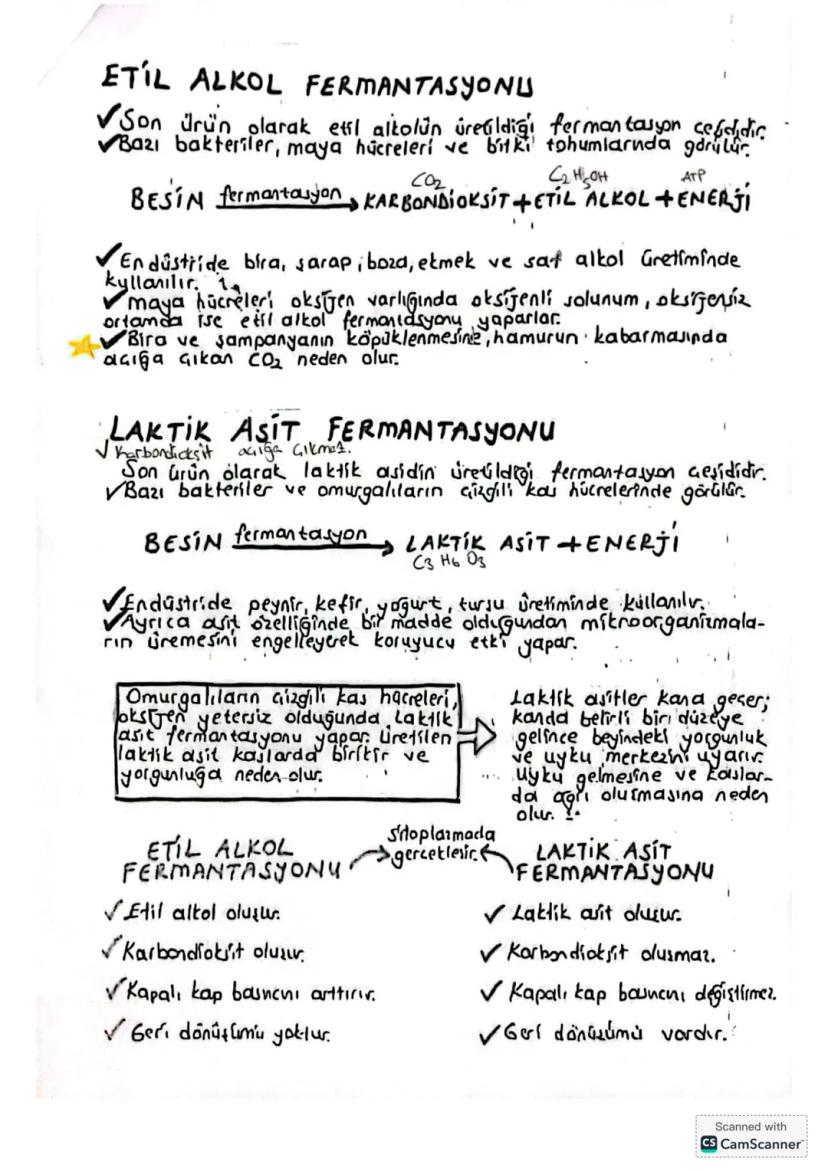 ETİL ALKOL FERMANTASYONU
✓Son ürün olarak etil alkolün üretildiği fermantasyon çeşididir.
✓Bazı bakteriler, maya hücreleri ve bitki tohumlarında görülür.
CO2 C2H5OH ATP
BESİN fermantasyon → KARBONDİOKSİT + ETİL ALKOL + ENERJİ
✓Endüstride bira, şarap, boza, ekmek ve saf alkol üretiminde
kullanılır.
✓maya hücreleri oksijen varlığında oksijenli solunum, oksijensiz
ortamda ise etil alkol fermantasyonu yaparlar.
✓Bira ve şampanyanın köpüklenmesine, hamurun kabarmasında
açığa çıkan CO2 neden olur.
LAKTİK ASİT FERMANTASYONU
✓Karbondioksit açığa çıkmaz.
Son ürün olarak laktik asidin üretildiği fermantasyon çeşididir.
✓Bazı bakteriler ve omurgalıların çizgili kas hücrelerinde görülür.
BESİN fermantasyon → LAKTİK ASİT + ENERJİ
C3 H6 O3
✓Endüstride peynir, kefir, yoğurt, turşu üretiminde kullanılır.
✓Ayrıca asit özelliğinde bir madde olduğundan mikroorganizmala-
rın üremesini engelleyerek koruyucu etki yapar.
Omurgalıların çizgili kas hücreleri,
oksijen yetersiz olduğunda laktik
asit fermantasyonu yapar. Üretilen
laktik asit kaslarda birikir ve
yorgunluğa neden olur.
Laktik asitler kana geçer;
kanda belirli bir düzeye
gelince beyindeki yorgunluk
ve uyku merkezini uyarır.
Uyku gelmesine ve kaslar-
da ağrı oluşmasına neden
olur.
Sitoplazmada
gerçekleşir.
ETİL ALKOL
FERMANTASYONU
✓Etil alkol oluşur.
✓Karbondioksit oluşur.
✓Kapalı kap basıncını arttırır.
✓Geri dönüşümü yoktur.
LAKTİK ASİT
FERMANTASYONU
✓Laktik asit oluşur.
✓Karbondioksit oluşmaz.
✓Kapalı kap basıncını değiştirmez.
✓Geri dönüşümü vardır.
Scanned with
CS CamScanner